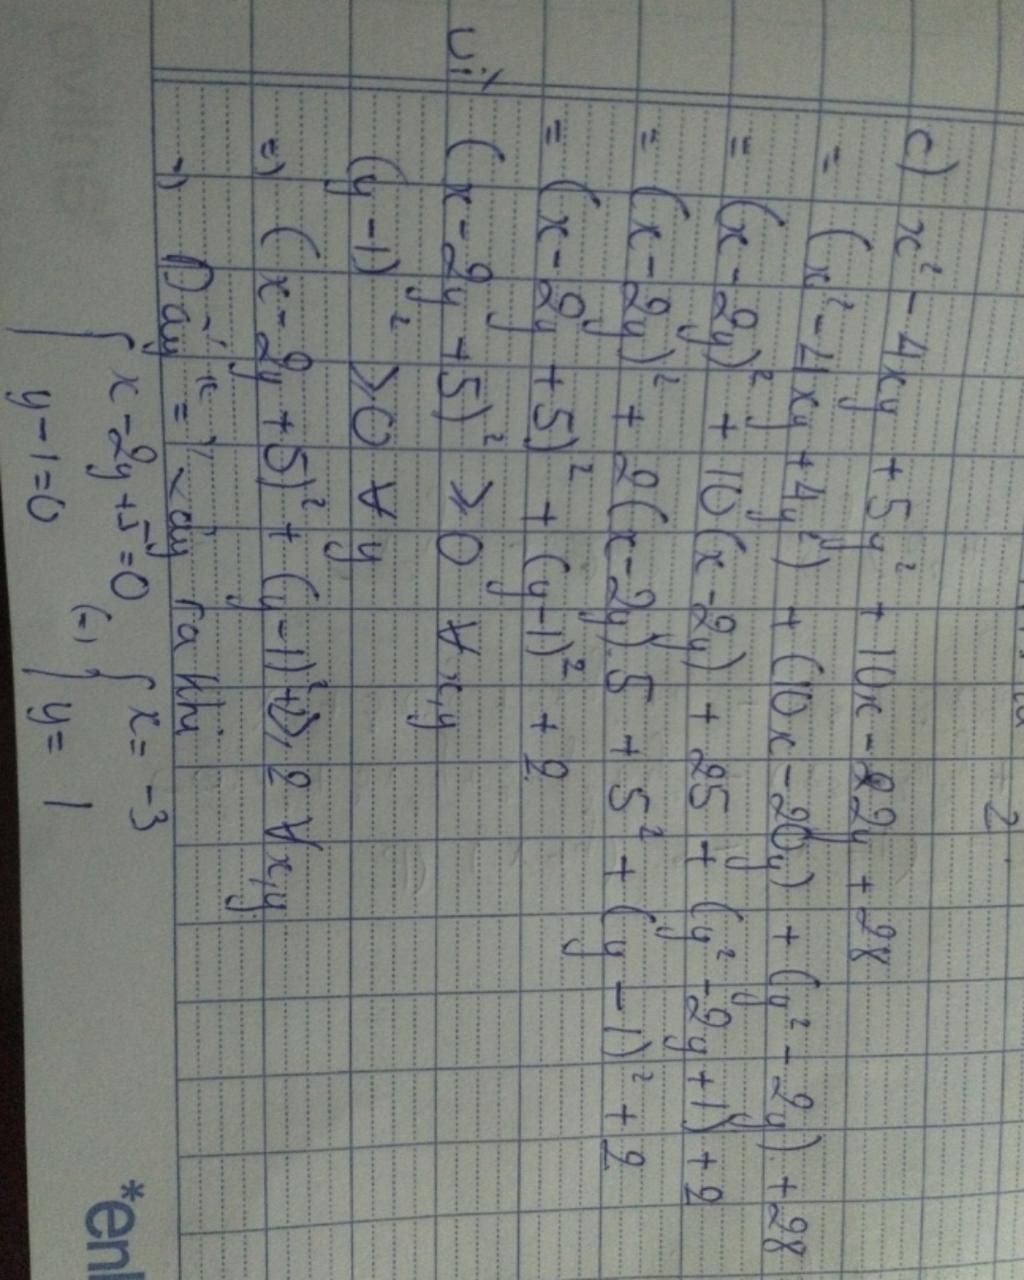 2
c) x² - 4xy + 5y² + 10x - 22y + 28
= (x² - 4xy + 4y²) + (10x - 20y) + (y² - 2y) + 28
= (x - 2y)² + 10(x - 2y) + 25 + (y² - 2y + 1) + 2
= (x - 2y)² + 2(x - 2y).5 + 5² + (y - 1)² + 2
= (x - 2y + 5)² + (y - 1)² + 2
Vì (x - 2y + 5)² ≥ 0 ∀ x,y
(y - 1)² ≥ 0 ∀ y
=> (x - 2y + 5)² + (y - 1)² + 2 ≥ 2 ∀ x,y
=> Dấu "=" xảy ra khi
{ x - 2y + 5 = 0 (=) { x = -3
y - 1 = 0 y = 1
*enl